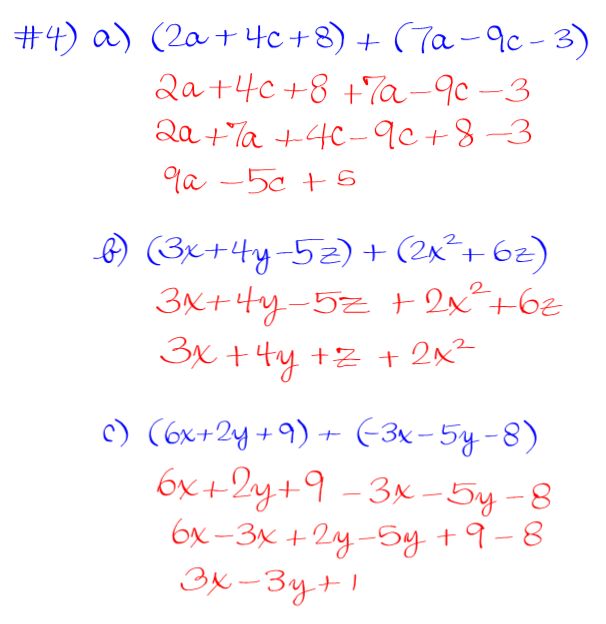 #4) a) (2a + 4c + 8) + (7a - 9c - 3)
2a + 4c + 8 + 7a - 9c - 3
2a + 7a + 4c - 9c + 8 - 3
9a - 5c + 5
b) (3x + 4y - 5z) + (2x² + 6z)
3x + 4y - 5z + 2x² + 6z
3x + 4y + z + 2x²
c) (6x + 2y + 9) + (-3x - 5y - 8)
6x + 2y + 9 - 3x - 5y - 8
6x - 3x + 2y - 5y + 9 - 8
3x - 3y + 1